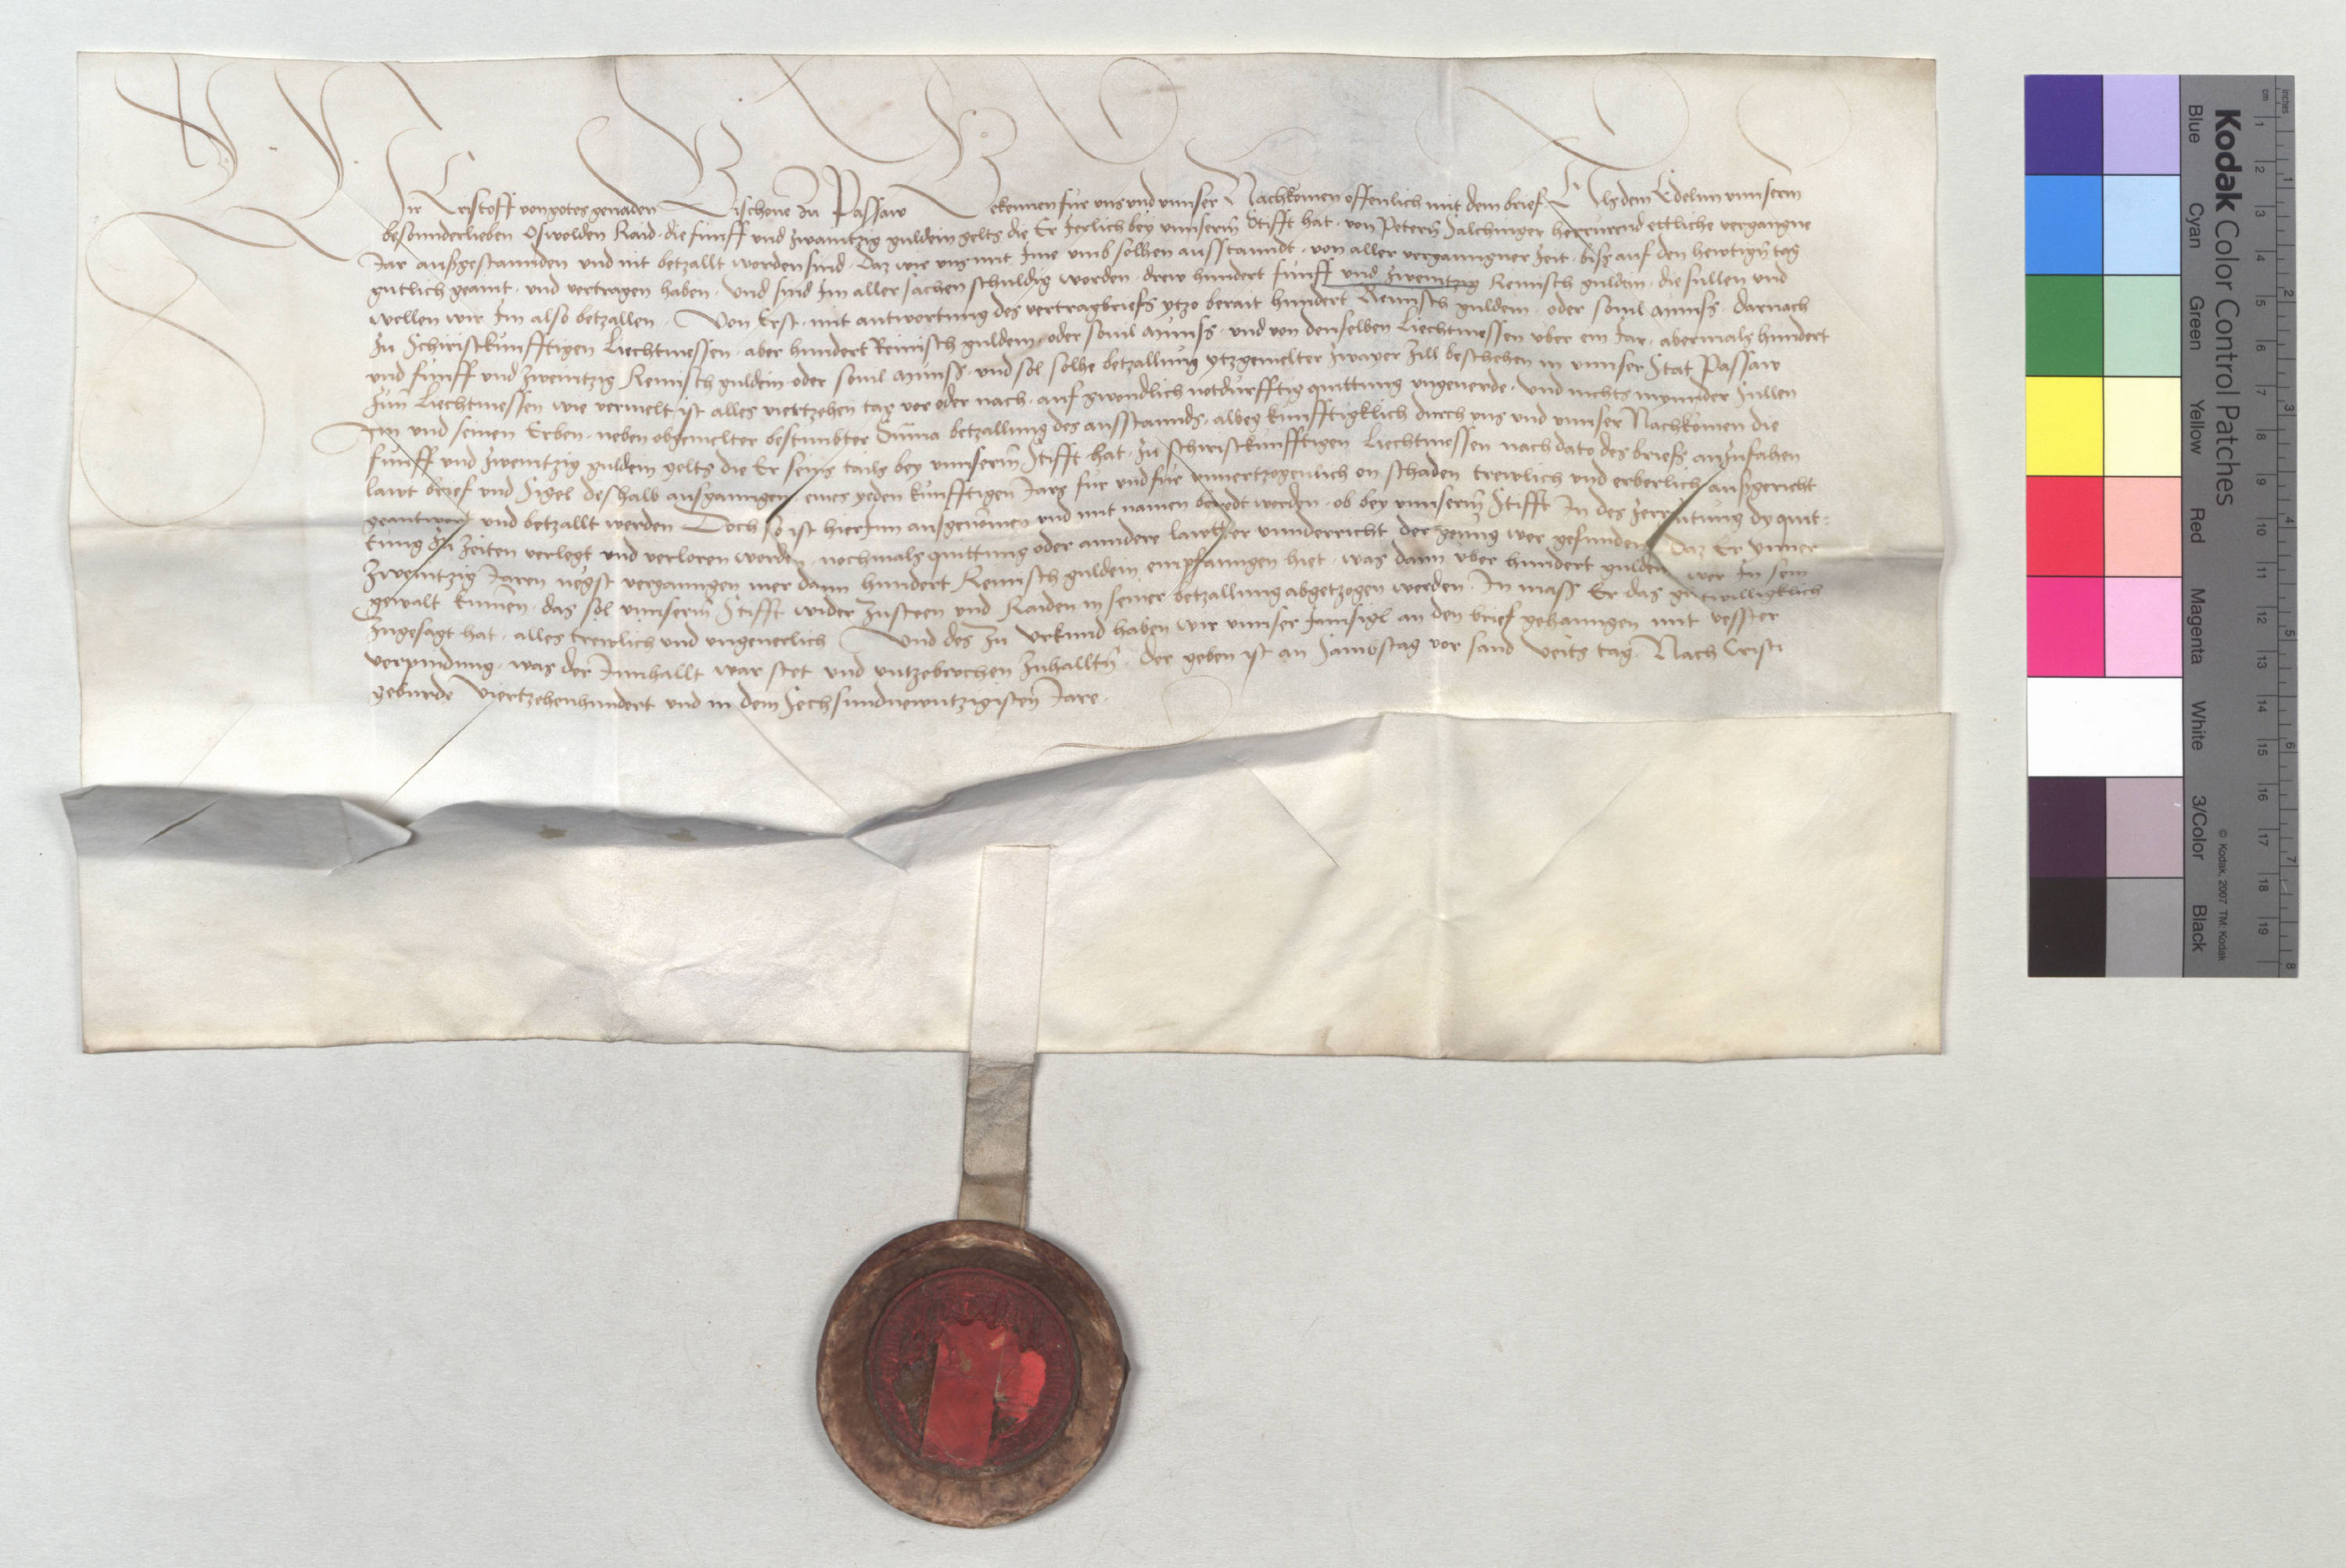 Wir Cristoff von gotes genaden Bischove zu Passaw Bekennen für uns und unnser Nachkomen offenlich mit dem brief Als dem Edelnn unnserm
besonnderlieben Oswolden Raid · die fünff und zwainntzig guldein gelts die Er Jerlich bey unnserm Stifft hat · von Petern Salchinger herrurend ettliche vergangne
Jar außgestannden und nit betzallt worden sind · Daz wir uns mit Ime umb solhen ausstanndt · von aller vergannngner Zeit · biß auf den hewtign tag
gütlich geaint · und vertragen haben · Und sind Im aller sachen schuldig worden · drew hundert fünff und zweintzig Reinisch guldein · die sullen und
wellen wir Im also betzallen · Von Erst · mit antwortung des vertragbriefs ytzo berait hundert Reinisch guldein · oder sovil münss · darnach
zu Schiristkunfftigen Liechtmessen · aber hundert Reinisch guldein · oder sovil münss · und von denselben Liechtmessen uber ein Jar · abermals hundert
und fünff und zweintzig Reinisch guldein oder sovil münss · und sol solhe betzallung ytzgemelter zwayer Zill beschehen in unnser Stat Passaw
zun Liechtmessen wie vermelt ist alles viertzehen tag vor oder nach · auf gwondlich notdurfftig quittung ungeverde · Und nichts mynnder sullen
Im und seinen Erben · neben obgemelter bestimbter Suma betzallung des ausstannds · albeg kunfftigklich durch uns und unnser Nachkomen die
fünff und zweintzig guldein gelts die Er seins tails bey unnserm Stifft hat · zu schiristkunfftigen Liechtmessen nach dato des briefs anzufahen
lawt brief und Sigel deshalb außganngen eines yeden kunfftigen Jars für und für unvertzogenlich on schaden trewlich und erberlich außgericht
geantwort und betzallt werden Doch so ist hierInn ausgenomen und mit namen beredt worden · ob bey unnserm Stifft In des zerrütung dy quit-
tung zu zeiten verlegt und verloren worden · nochmals quittung oder anndere lawtter unnderricht der genüg wer gefunden Daz Er Inner
zweintzig Jaren negst vergannngen mer dann hundert Reinisch guldein empfanngen hiet · was dann uber hundert gulden wer In sein
gewalt kumen · das sol unnserm Stifft wider zusteen und Raiden in seiner betzallung abgetzogen werden · In mass Er das gutwilligklich
zugesagt hat · alles trewlich und ungeverlich Und des zu Urkund haben wir unnser Innsigl an den brief gehanngen mit vesster
verpindung · was der Innhallt war stet und untzebrochen zuhalltn · Der geben ist an Sambstag vor sand Veits tag · Nach Cristi
geburde Viertzehenhundert und in dem Sechsundnewntzigisten Jare ·
Kodak Color Control Patches
Blue Cyan Green Yellow Red Magenta White 3/Color Black
© Kodak, 2007 TM: Kodak
cm 1 2 3 4 5 6 7 8 9 10 11 12 13 14 15 16 17 18 19
inches 1 2 3 4 5 6 7 8